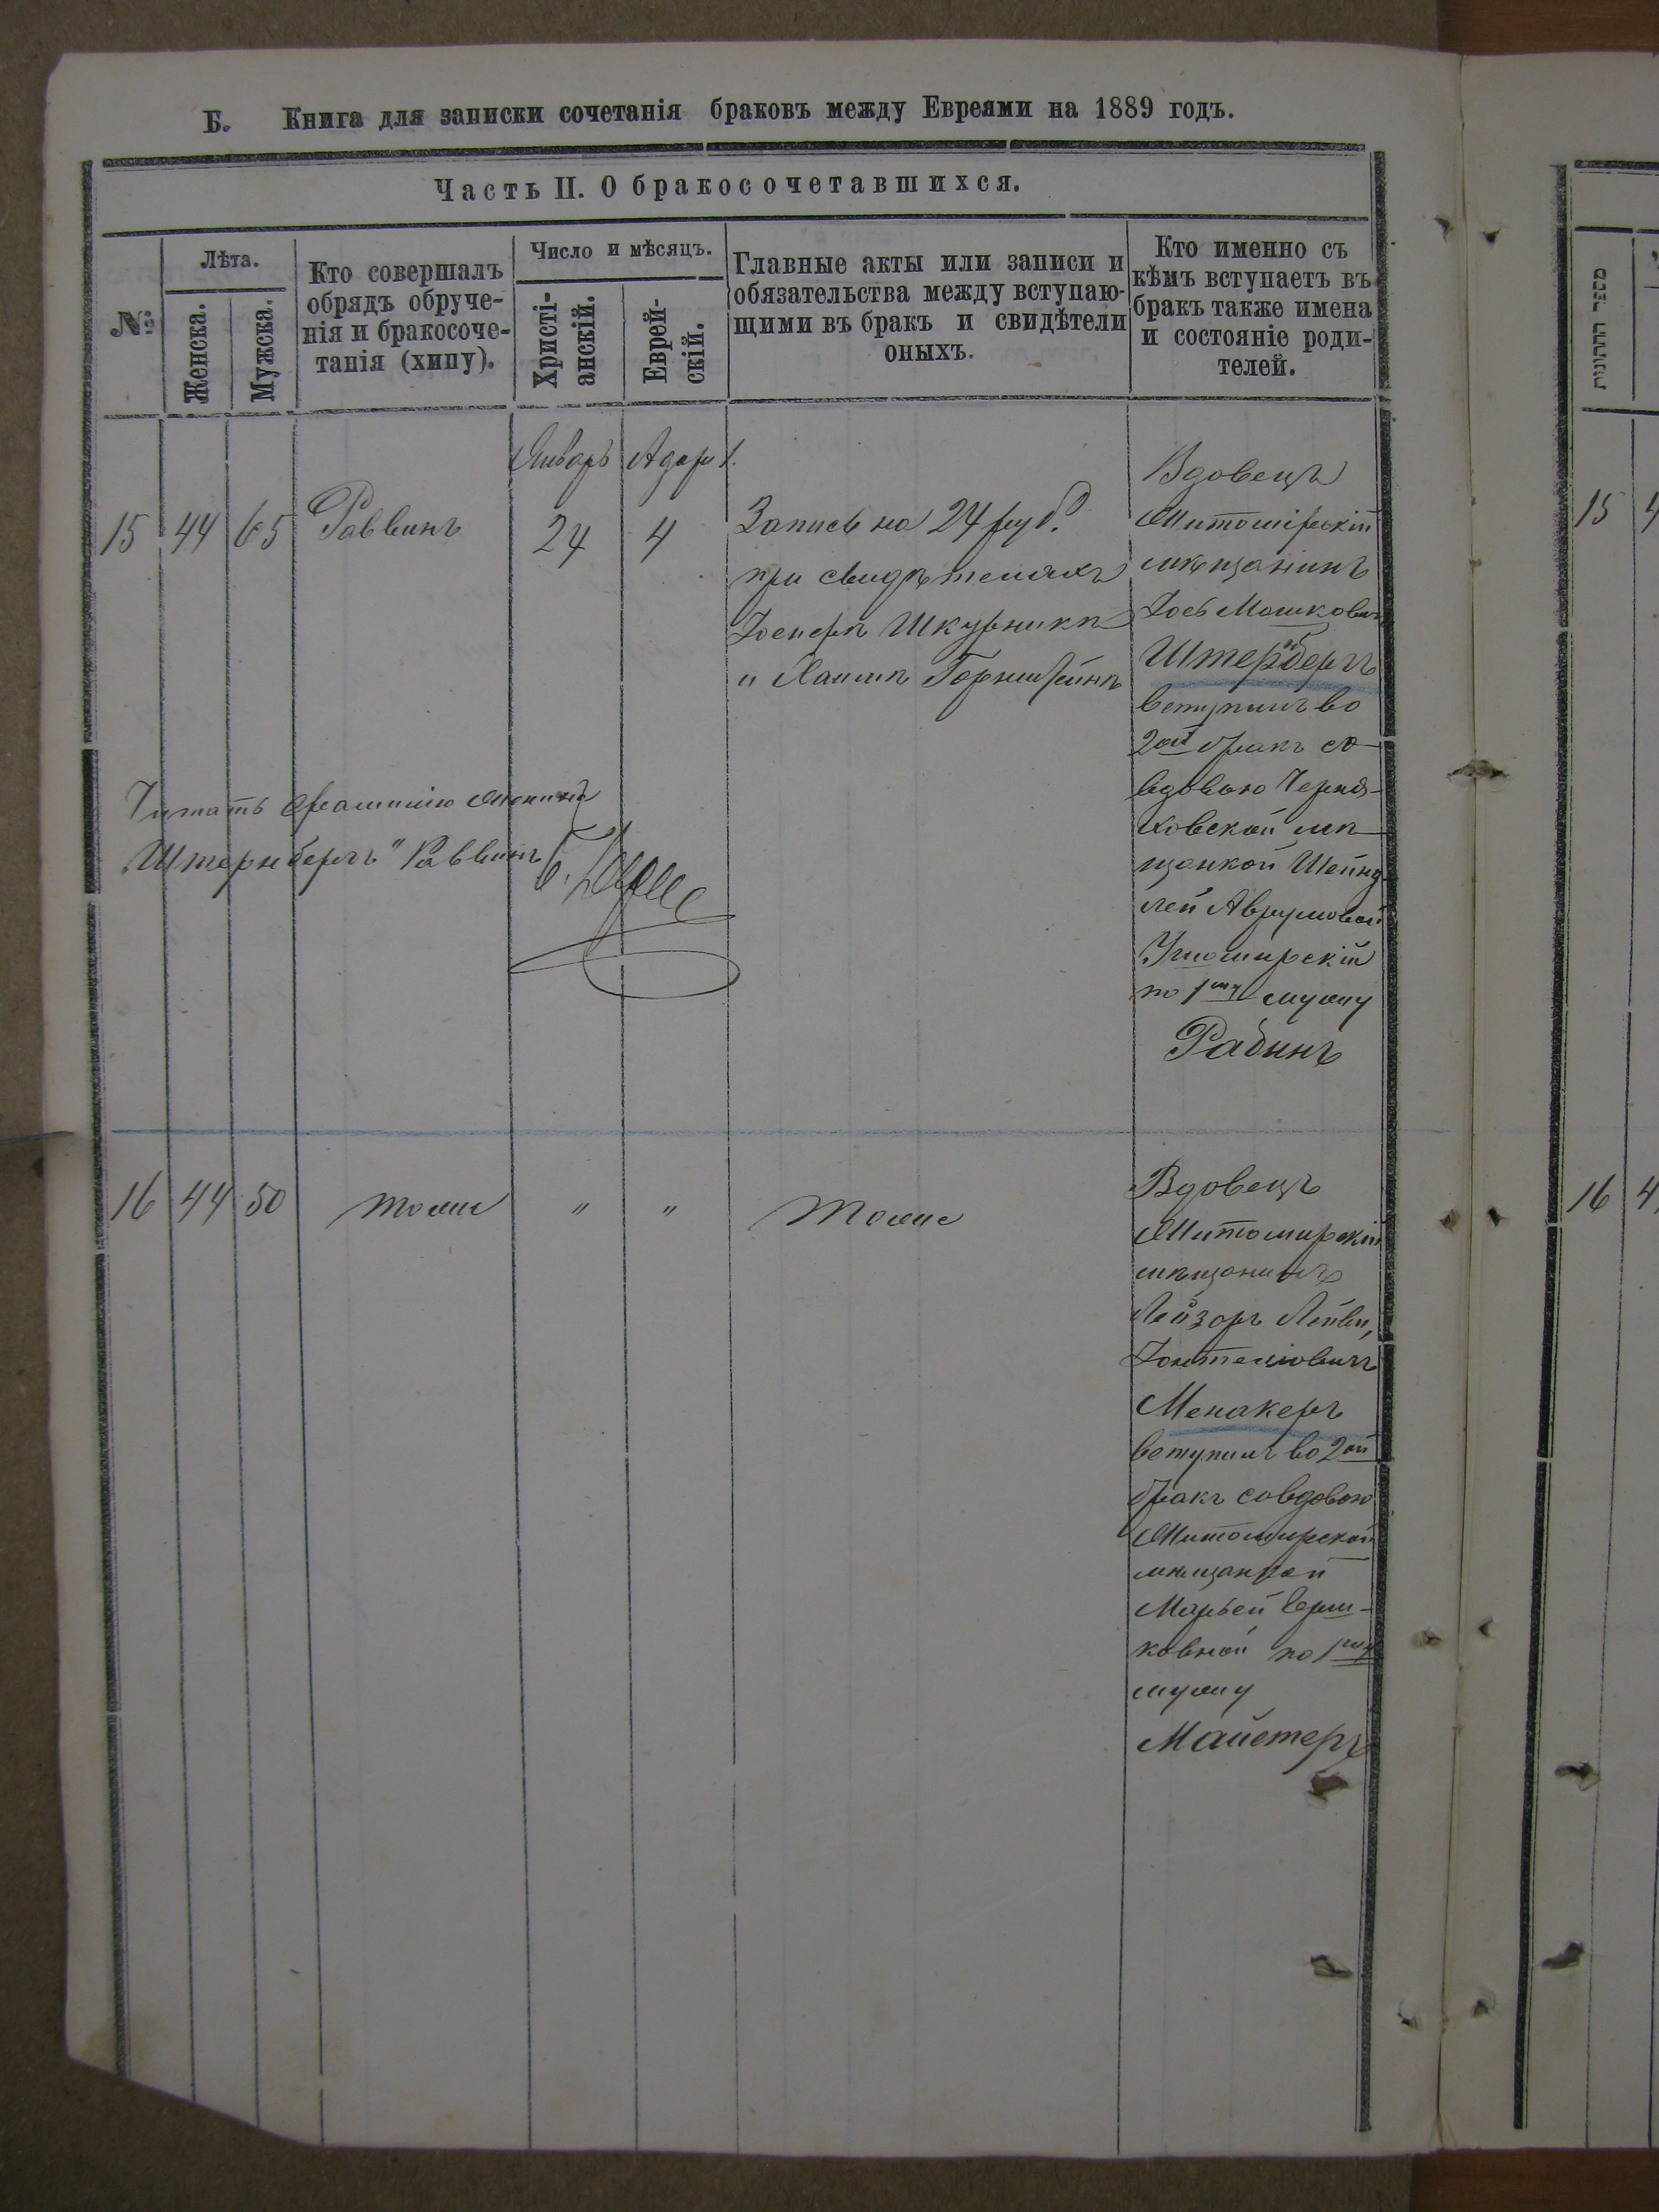 Б. Книга для записки сочетанія браковъ между Евреями на 1889 годъ.
Часть II. О бракосочетавшихся.
№
Лѣта.
Женска.
Мужска.
Кто совершалъ
обрядъ обруче-
нія и бракосоче-
танія (хипу).
Число и мѣсяцъ.
Христі-
анскій.
Еврей-
скій.
Главные акты или записи и
обязательства между вступаю-
щими въ бракъ и свидѣтели
оныхъ.
Кто именно съ
кѣмъ вступаетъ въ
бракъ также имена
и состояніе роди-
телей.
Январь
Адаръ 1.
15
44
65
Раввинъ
24
4
Запись на 24 руб.
при свидѣтеляхъ
Іосифѣ Шкурникѣ
и Хаимѣ Горнштейнѣ
Вдовецъ
Житомірскій
мѣщанинъ
Іось Мошкович
Штернбергъ
вступилъ во
2ой бракъ со
вдовою Черня-
ховской мѣ-
щанкой Шейнд-
лей Аврумовой
по 1му мужу
Рабинъ
Читать фамилію жениха
„Штернбергъ" Раввинъ
16
44
50
тоже
"
"
Тоже
Вдовецъ
Житомирскій
мѣщанинъ
Лейзоръ Лейви,
Менакеръ
вступилъ во 2ой
бракъ совдовою
Житомирской
мѣщанкой
Марьей Берш-
ковной по 1му
мужу
Майстеръ
מספר החתונות
15
4
16
4